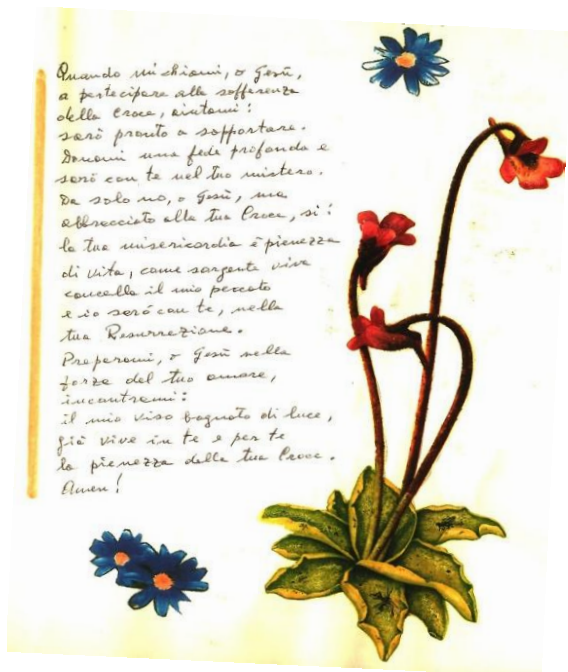 Quando mi chiami, o Gesù,
a partecipare alla sofferenza
della Croce, aiutami:
sarò pronto a sopportare.
Donami una fede profonda e
sarò con te nel tuo mistero.
Da solo no, o Gesù, ma
abbracciato alla tua Croce, sì!
la tua misericordia è pienezza
di vita, come sorgente viva
cancella il mio peccato
e io sarò con te, nella
tua Resurrezione.
Preparami, o Gesù nella
forza del tuo amore,
incontrami:
il mio viso bagnato di luce,
già vive in te e per te
la pienezza della tua Croce.
Amen!